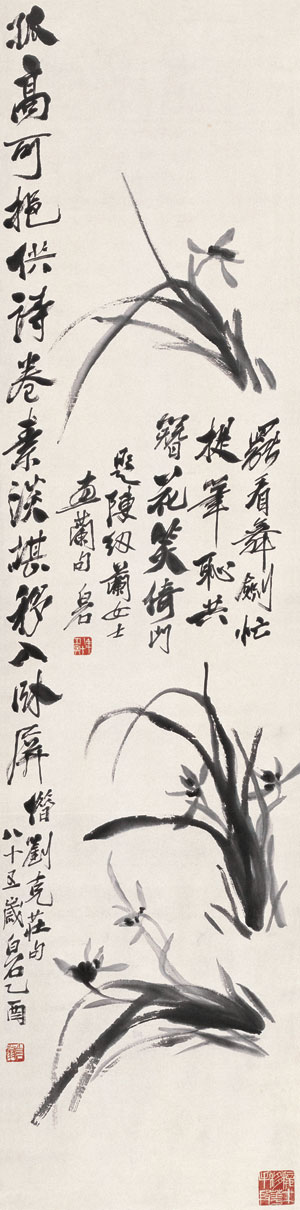 孤高可挹供詩卷素淡堪移入臥屏
借劉克莊句
八十五歲白石乙酉
罷看舞劍忙
提筆恥共
簪花笑倚門
題陳紉蘭女士
畫蘭句 白石